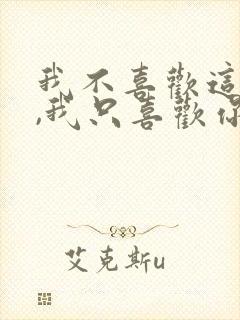 我不喜歡這
,我只喜歡你
艾克斯u